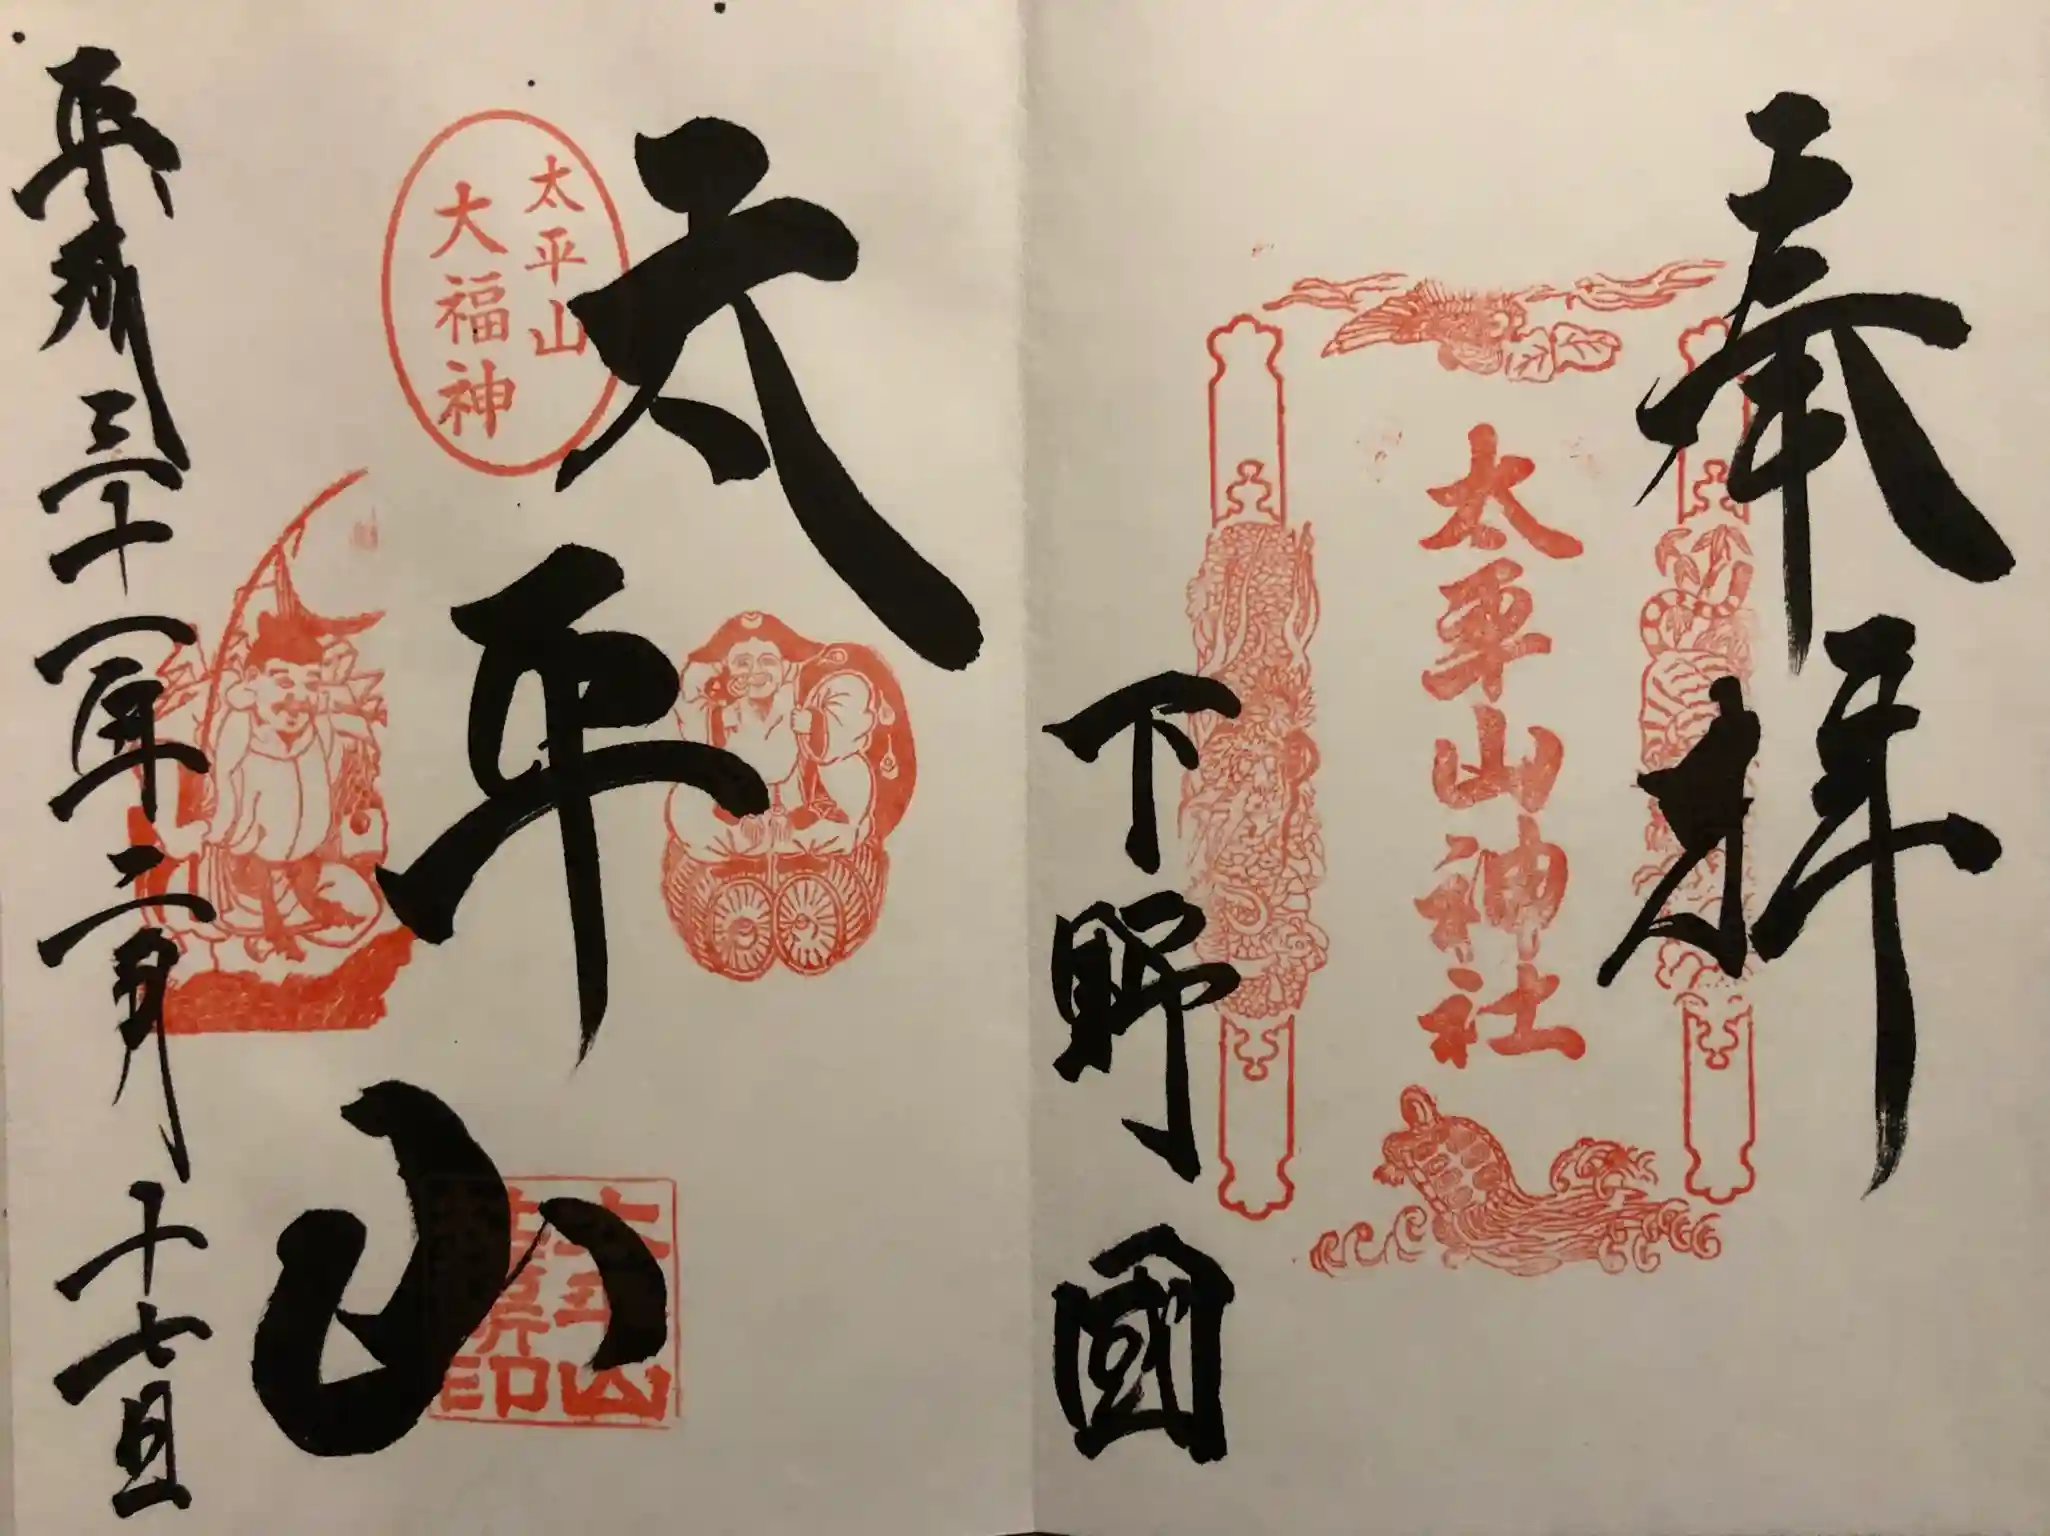 奉拝
太平山神社
下野國
太平山
太平山
大福神
太平山
印
平成三十一年二月十七日